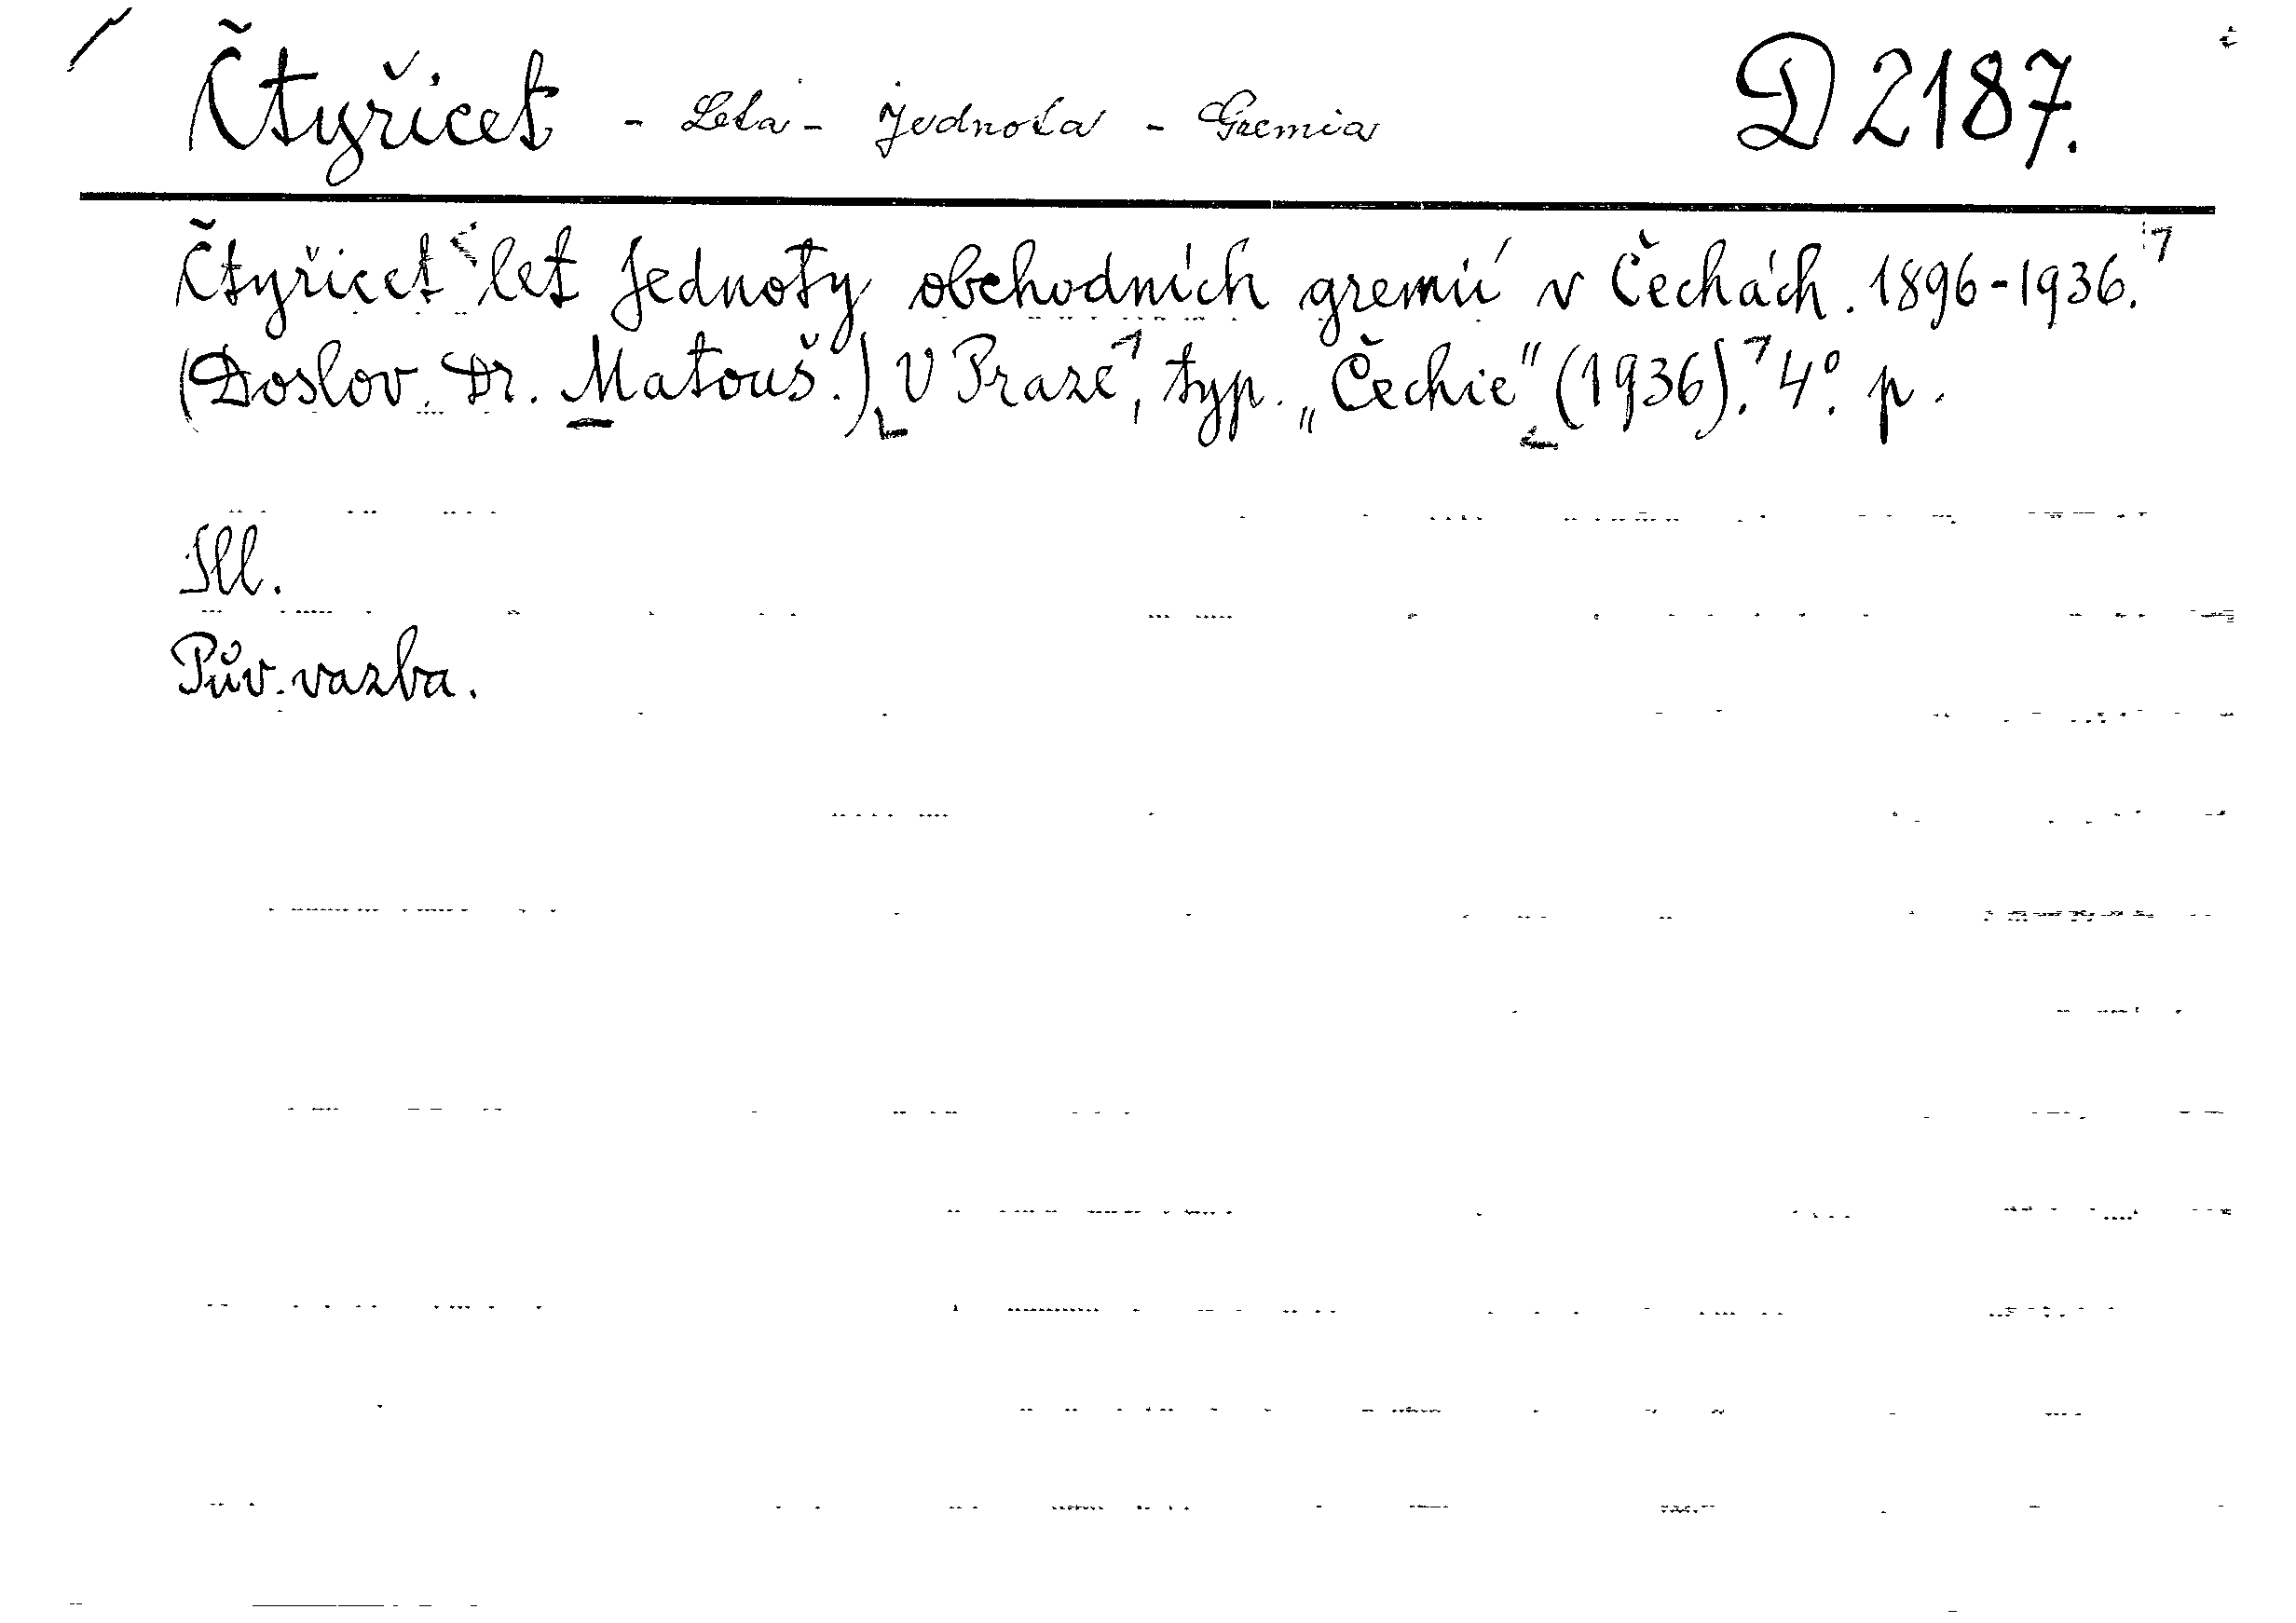 Čtyřicet - Leta - Jednota - Gremia D 2187.
Čtyřicet let Jednoty obchodních gremií v Čechách. 1896-1936.
(Doslov. Dr. Matouš.) V Praze, typ. „Čechie" (1936). 4°. p.
Ill.
Pův. vazba.